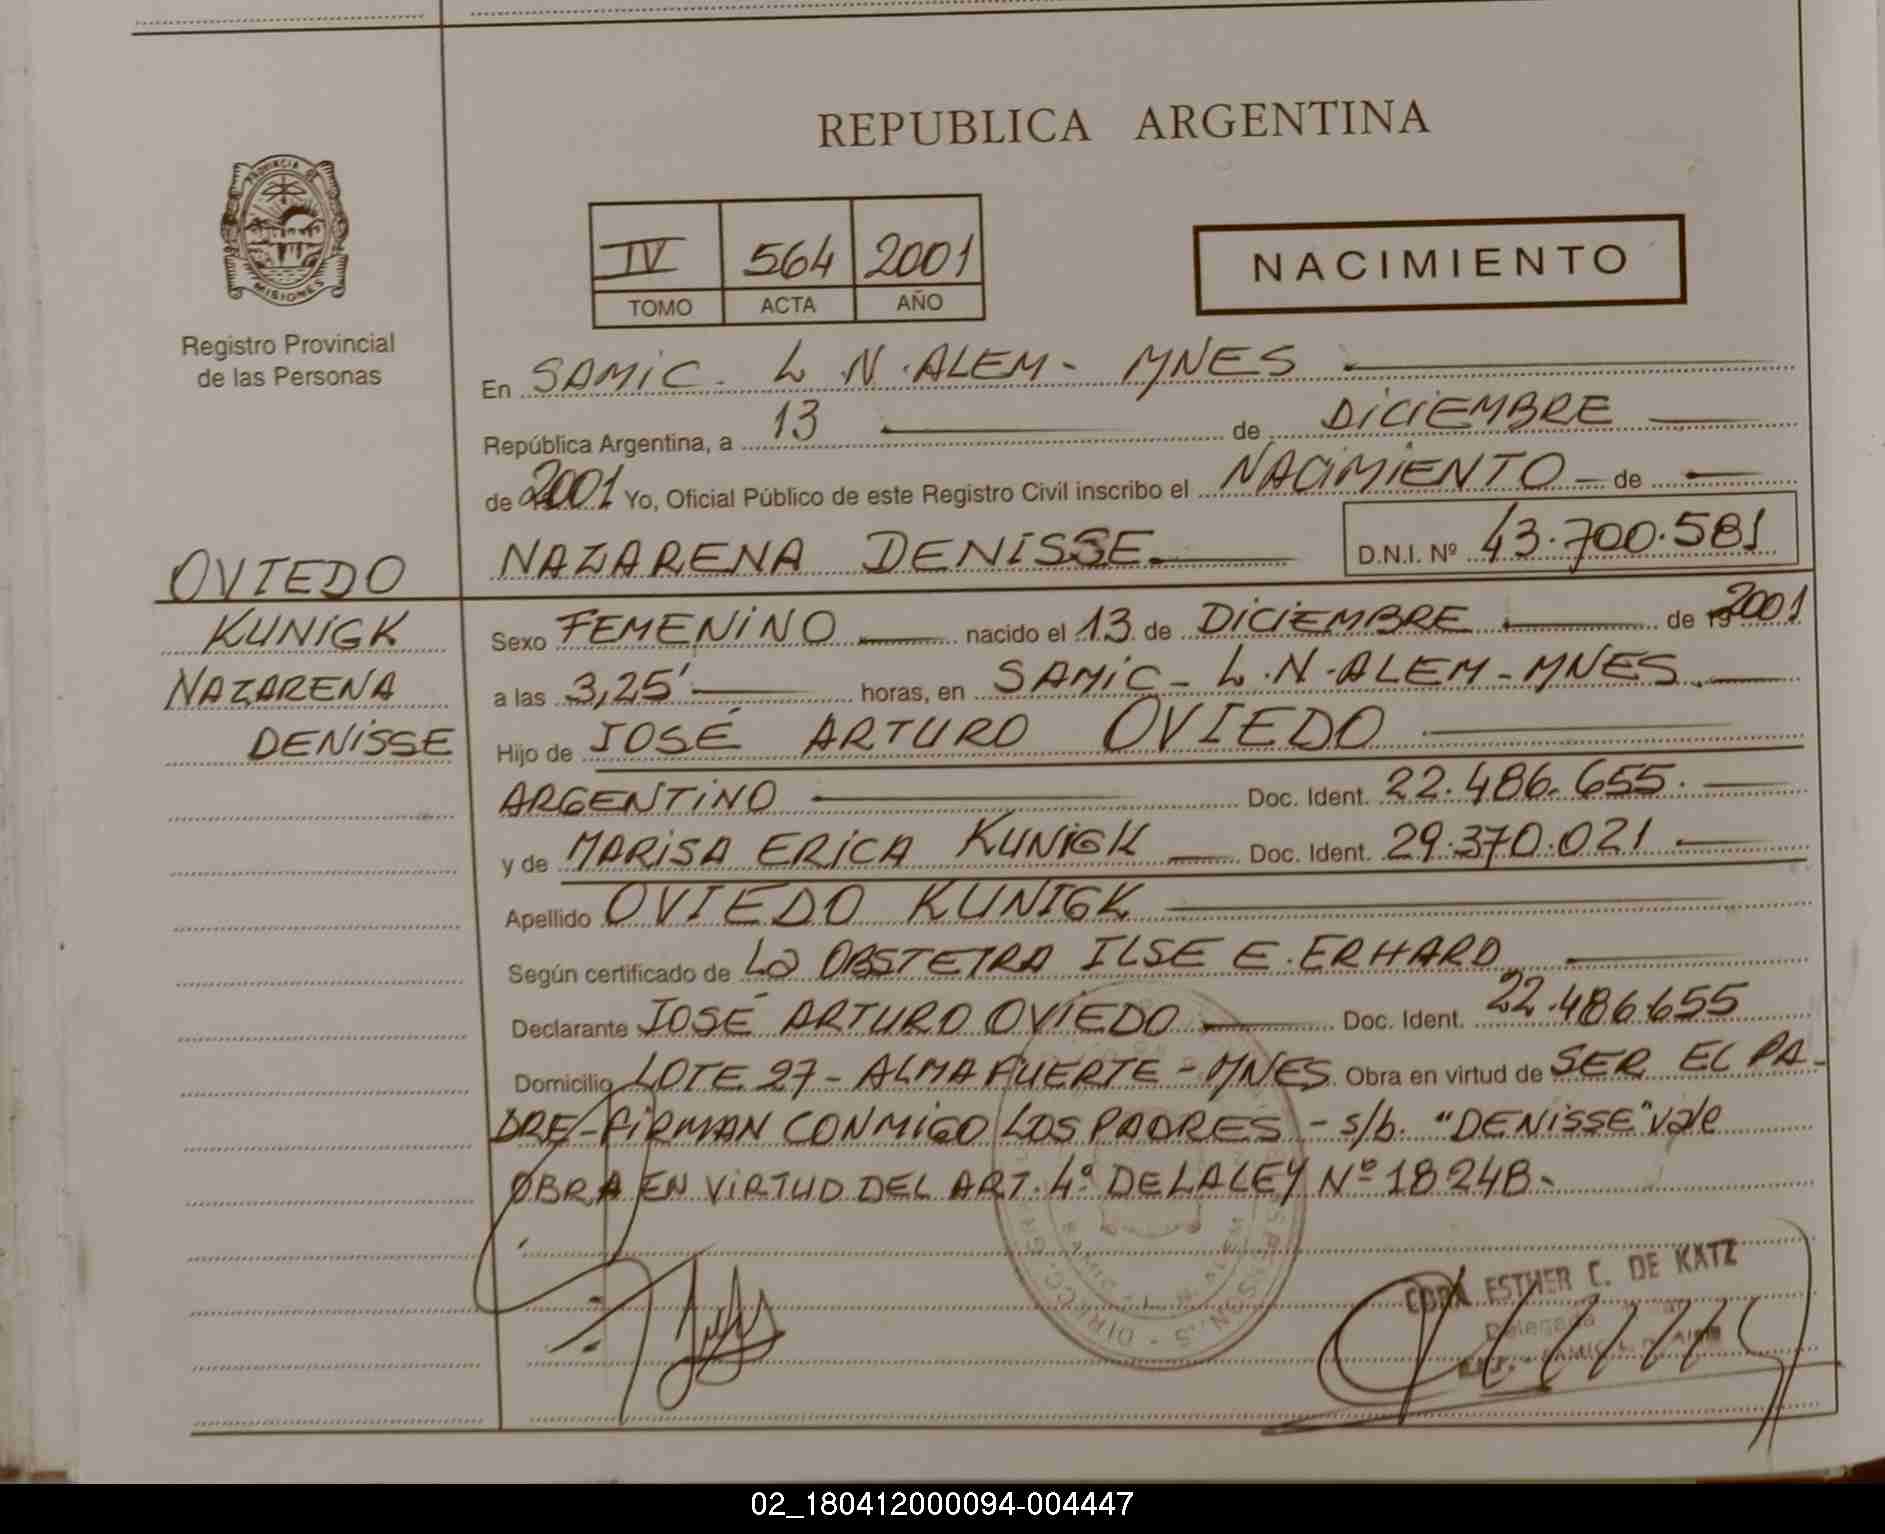 REPUBLICA ARGENTINA
PROVINCIA DE
MISIONES
Registro Provincial
de las Personas
IV 564 2001
TOMO ACTA AÑO
NACIMIENTO
En SAMiC - L.N.ALEM - MNES
República Argentina, a 13 de DiCiEMBRE
de 2001 Yo, Oficial Público de este Registro Civil inscribo el NACiMiENTO de
NAZARENA DENISSE. D.N.I. Nº 43.700.581
OVIEDO
KUNiGK
NAZARENA
DENiSSE
Sexo FEMENiNO nacido el 13 de DiCiEMBRE de 2001
a las 3,25' horas, en SAMiC - L.N.ALEM - MNES.
Hijo de JOSÉ ARTURO OVIEDO
ARGENTiNO Doc. Ident. 22.486.655.
y de MARiSA ERiCA KUNiGK Doc. Ident. 29.370.021
Apellido OVIEDO KUNIGK
Según certificado de La OBSTETRA ILSE E. ERHARD
Declarante JOSÉ ARTURO OViEDO Doc. Ident. 22.486.655
Domicilio LOTE 27 - ALMAFUERTE - MNES Obra en virtud de SER EL PA-
DRE - FiRMAN CONMiGO LOS PADRES - s/b. "DENiSSE" vale
OBRA EN ViRTUD DEL ART. 4º DE LA LEY Nº 18248.
ESTHER C. DE KATZ
Delegada
02_180412000094-004447